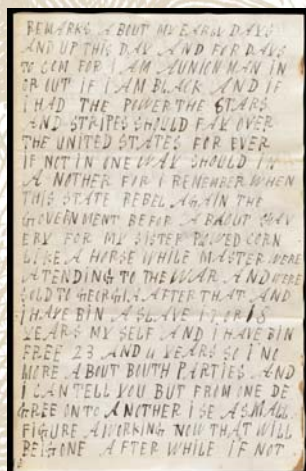 REMARKS ABOUT MY EARLY DAYS
AND UP THIS DAY AND FOR DAYS
TO COM FOR I AM A UNION MAN IN
OR OUT IF I AM BLACK AND IF
I HAD THE POWER THE STARS
AND STRIPES SHOULD FAY OVER
THE UNITED STATES FOR EVER
IF NOT IN ONE WAY SHOULD IN
A NOTHER FOR I REMEMBER WHEN
THIS STATE REBEL AGAIN THE
GOVERNMENT BEFOR A BAOUT SLAV
ERY FOR MY SISTER POWED CORN
LIKE A HORSE WHILE MASTER WERE
ATENDING TO THE WAR AND WERE
SOLD TO GEORGIA AFTER THAT AND
I HAVE BIN A SLAVE 17 OR 18
YEARS MY SELF AND I HAVE BIN
FREE 23 AND 4 YEARS SO I NO
MORE ABOUT BOUTH PARTIES AND
I CAN TELL YOU BUT FROM ONE DE
GREE ONTO ANOTHER I SE A SMALL
FIGURE AWORKING NOW THAT WILL
BEIGONE AFTER WHILE IF NOT